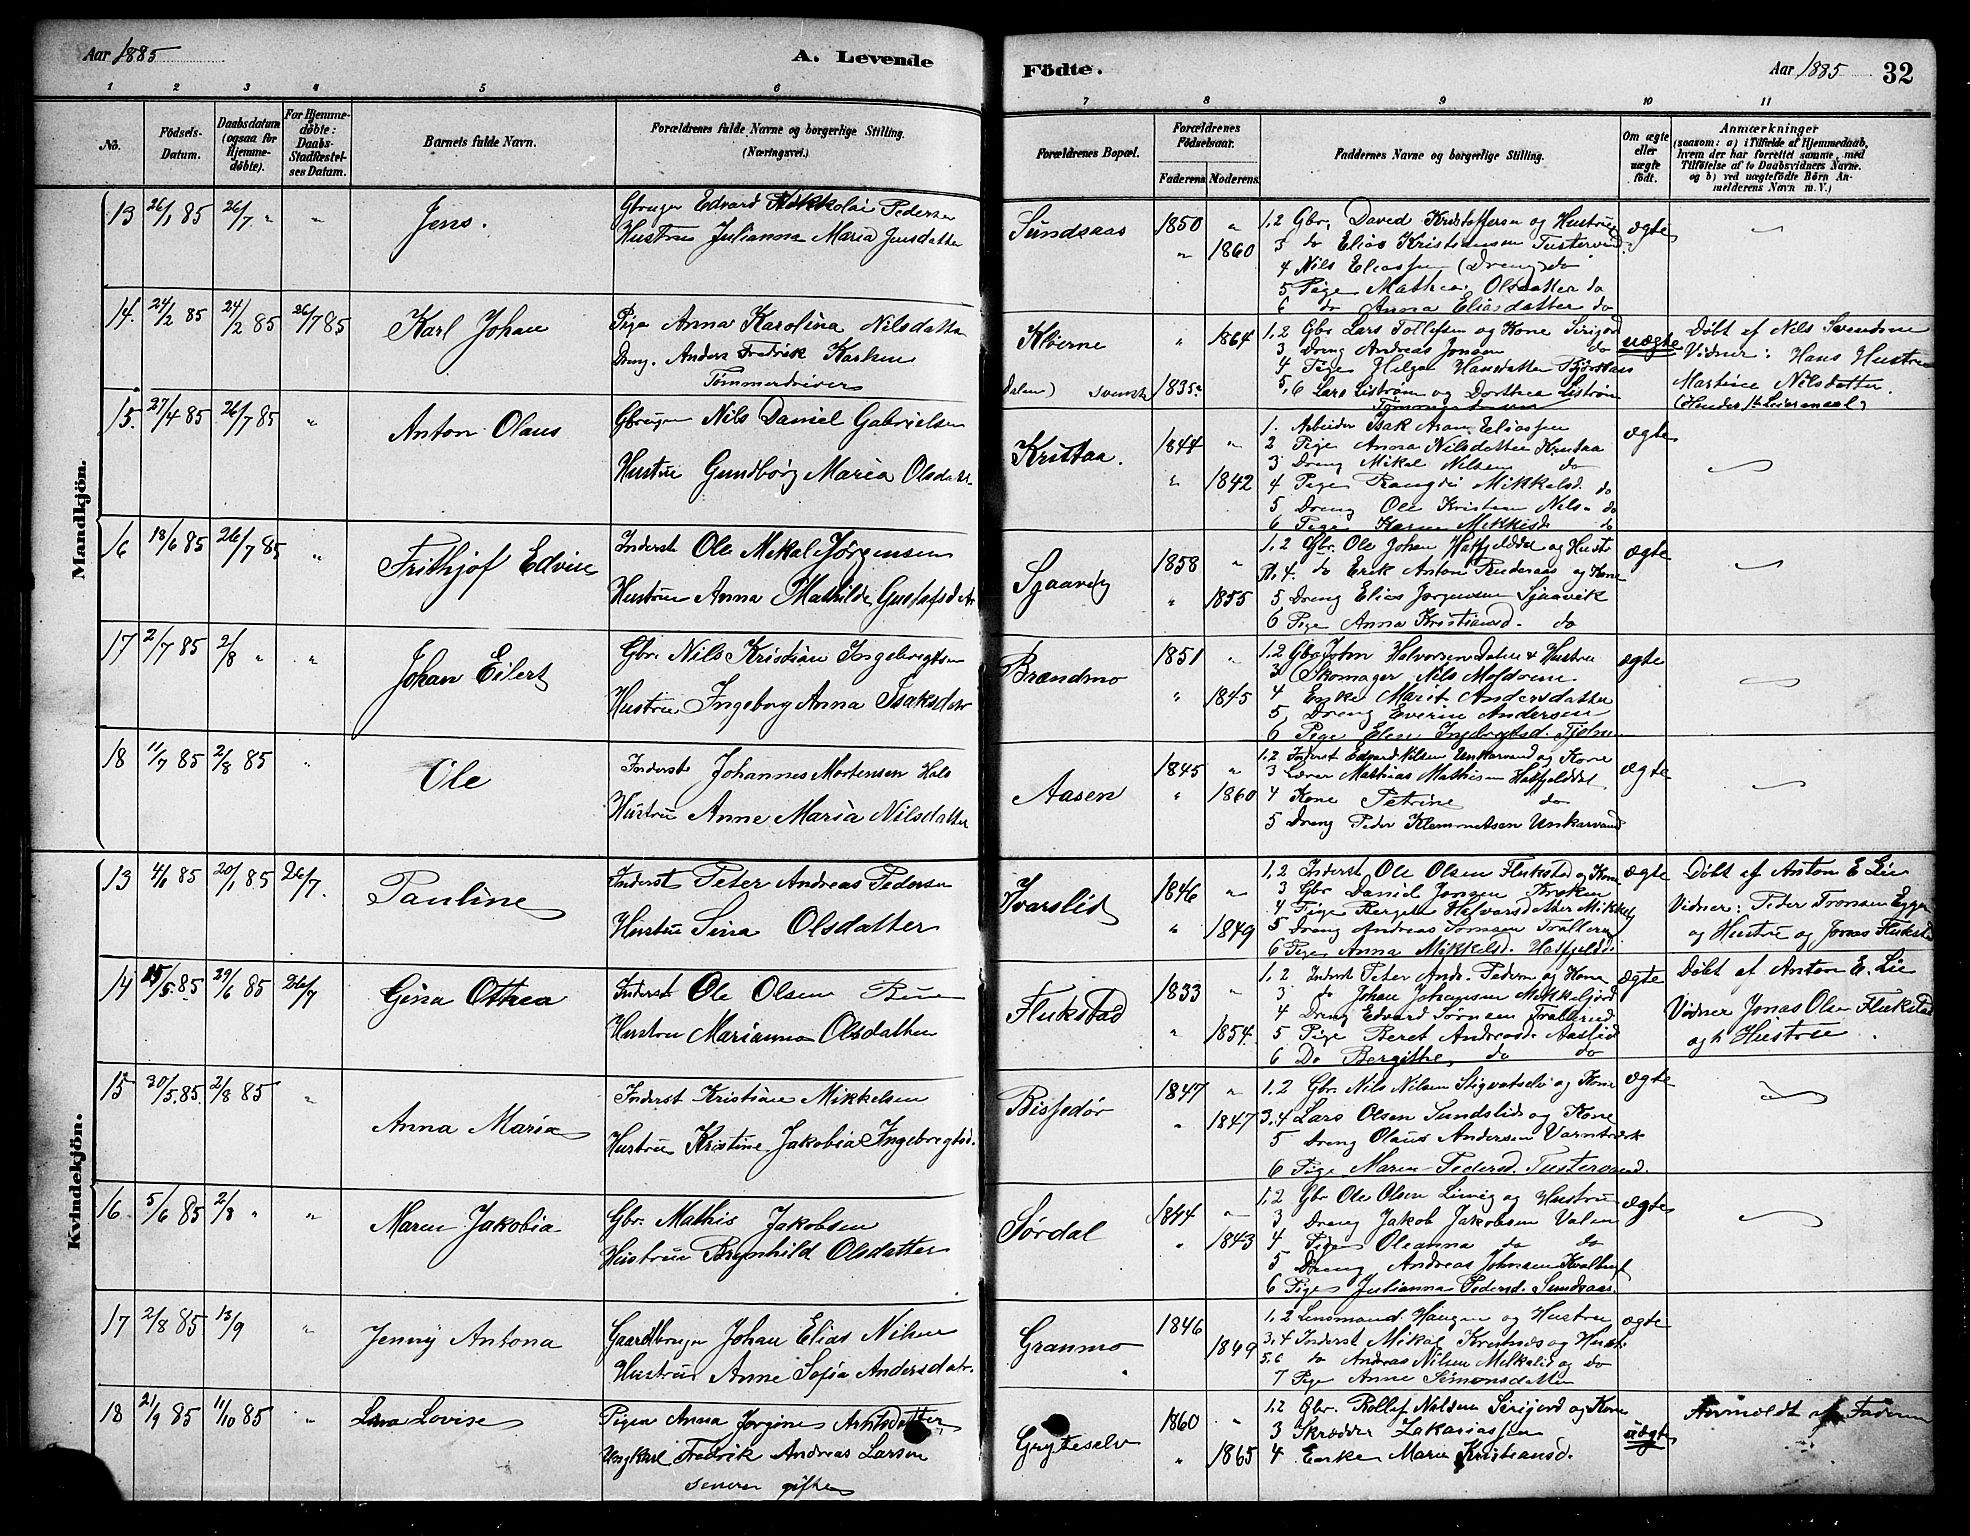 Aar 1885
A. Levende
Födte.
Aar 1885
32
1 2 3 4 5 6 7 8 9 10 11
No.
Födsels-
Datum.
Daabsdatum
(ogsaa for
Hjemme-
döbte).
For Hjemme-
döbte:
Daabs-
Stadfæstel-
ses Datum.
Barnets fulde Navn.
Forældrenes fulde Navne og borgerlige Stilling.
(Næringsvei.)
Forældrenes Bopæl.
Forældrenes
Födselsaar.
Faderens. Moderens.
Faddernes Navne og borgerlige Stilling.
Om ægte
eller
uægte
födt.
Anmærkninger
(saasom: a) i Tilfælde af Hjemmedaab,
hvem der har forrettet samme, med
Tilföielse af to Daabsvidners Navne.
og b) ved uægtefödte Börn An-
melderens Navn m. V.)
Mandkjön.
13 26/1 85 26/7 " " Jens.
Gbruger Edvard Nikkolai Pedersen
Hustru Julianna Maria Jensdatter
Sundsaas 1850 " " 1860
1.2 Gbr. David Kristoffersen og Hustru
3 do Elias Kristiansen Tustervand
4 Nils Eliassen (Dreng) do
5 Pige Mathea Olsdatter do
6 do Anna Eliasdatter do
ægte
14. 24/2 85 24/2 85 26/7 85 Karl Johan
Pige Anna Karolina Nilsdatter
Dreng. Anders Fredrik
Tømmerdriver
Kløerne " 1864
svensk 1835
1.2 Gbr Lars Tollefsen og Kone
3 Dreng Andreas Jonsen do
4 Pige Helga Hansdatter
5,6 Lars Liström og Dorthea Liström
uægte
Døbt af Nils Svendsen
Vidner: Hans Hustru
Martine Nilsdatter
(Hendes 1ste Leiermaal)
15. 27/4 85 26/7 85 " Anton Olaus
Gbruger Nils Daniel Gabrielsen
Hustru Gundborg Maria Olsdatr
Krutaa. 1844 " " 1842
1. Arbeider Isak Aron Eliassen
2 Pige Anna Nilsdatter Krutaa
3 Dreng Mikal Nilsen do
4 Pige Mikkelsd. do
5 Dreng Ole Kristian Nilsen do
6 Pige Karen do
ægte
16 18/6 85 26/7 85 " Frithjof Edvin
Inderst Ole Mikal Jørgensen
Hustru Anna Mathilde Gustafsdatr
Sjaavig 1858 " " 1855
1.2 Gbr. Ole Johan Hatfjelddal og Hustr.
3.4. do Erik Anton og Kone
5 Dreng Elias Jørgensen Sjaavik
6 Pige Anna Kristiansd. do
ægte
17 2/7 85 2/8 " " Johan Eilert
Gbr. Nils Kristian Ingebregtsen
Hustru Ingeborg Anna Isaksdatr
Brændmo 1851 " " 1845
1.2 Gbr John Halvorsen & Hustru
3 Skomager Nils
4 Enke Marit Andersdatter
5 Dreng Everin Andersen
6 Pige Elen Ingebrigtsd.
ægte
18 11/7 85 2/8 85 " Ole
Inderst Johannes Mortensen Hals
Hustru Anne Maria Nilsdatter
Aasen 1845 " " 1860
1.2 Inderst Edvard Nilsen Unkarvand og Kone
3 Lærer Mathias Mathisen Hatfjelddal
4 Kone Petrine do
5 Dreng Peder Klemmetsen Unkarvand
ægte
Kvindekjön.
13 4/1 85 20/1 85 26/7. Pauline
Inderst Peter Andreas Pedersen
Hustru Sina Olsdatter
Ivarslid 1846 " " 1849
1.2 Inderst Ole Olsen Flukstad og Kone
3 Gbr Daniel Jonsen Kroken
4 Pige Berget Halvarsdatter
5 Dreng Andreas
6 Pige Anna Mikkelsd.
ægte
Døbt af Anton E Lie
Vidner: Peder
og Hustru og Jonas Flukstad
14 15/5 85 29/6 85 26/7 Gina Othea
Inderst Ole Olsen
Hustru Marianna Olsdatter
Flukstad 1833 " " 1854.
1.2 Inderst Peter Andr. Pedersen og Kone
3 do Johan Johansen Mikkeljord
4 Dreng Edvard
5 Pige Beret Andreasd.
6 Do Bergithe do do
ægte
Døbt af Anton E. Lie
Vidner Jonas Olsen Flukstad
og h Hustru.
15 20/5 85 2/8 85 " Anna Maria
Inderst Kristian Mikkelsen
Hustru Kristine Jakobia Ingebregtsd.
Bissedør 1847 " " 1847
1.2 Gbr. Nils Nilsen og Kone
3.4 Lars Olsen Sundslid og Kone
5 Dreng Olaus Andersen Varntræsk
6 Pige Maren Pedersd. Tustervand.
ægte
16 5/6 85 2/8 " " Maren Jakobia
Gbr. Mathis Jakobsen
Hustru Brynhild Olsdatter
Sørdal 1844 " 1843
1.2 Gbr Ole Olsen og Hustru
3 Dreng Jakob Jakobsen
4 Pige Oleanna do do
5 Dreng Andreas Johnsen
6 Pige Julianna Pedersd. Sundsaas
ægte
17 2/8 85 13/9 " Jenny Antona
Gaardbruger Johan Elias Nilsen
Hustru Anne Sofia Andersdatr.
Granmo 1846 1849
1.2 Lensmand Haugen og Hustru
3.4 Inderst Mikal og Hustr.
5.6 do Andreas Nilsen og do
7 Pige Anne Simonsdatter
ægte
18 21/9 85 11/10 85 " Lovise
Pigen Anna Jørgine
Ungkarl Fredrik Andreas Larsen
senere gifte
Gryteselv 1860 " " 1865
1.2 Gbr. og Kone
3 Skrædder Zakariassen
4 Enke Marie Kristiansd.
uægte
Anmeldt af Faderen